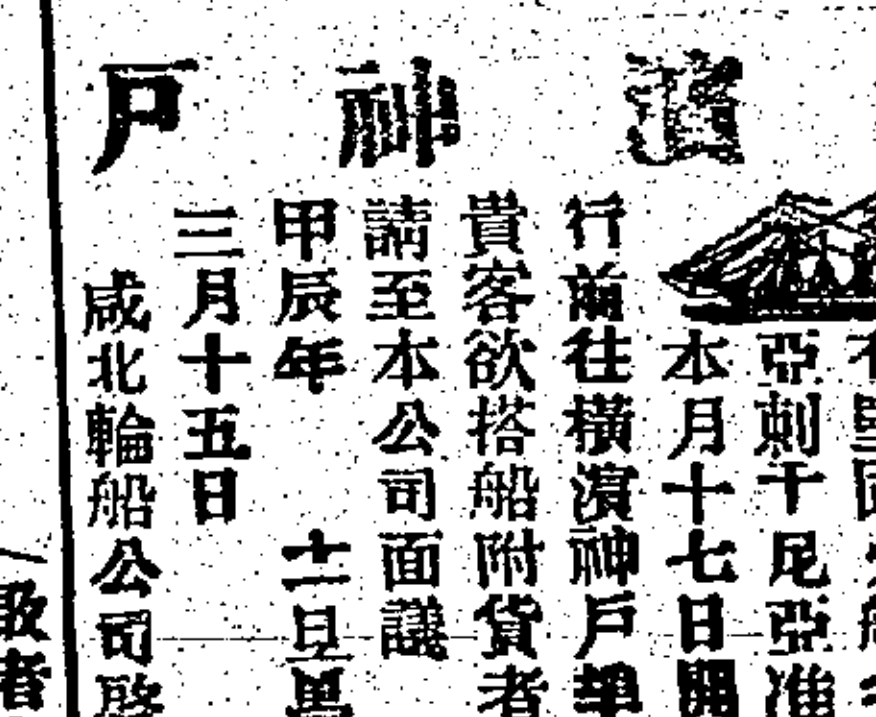 濱神戶
亞刺干尼亞准
本月十七日開
行前往橫濱神戶
貴客欲搭船附貨者
請至本公司面議
甲辰年
三月十五日
咸北輪船公司啓
者